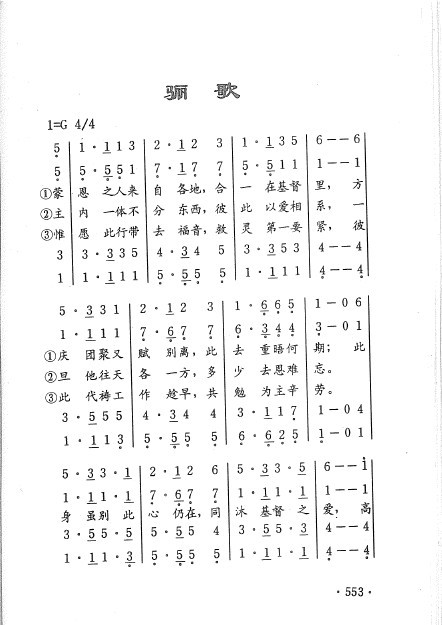 骊 歌
1=G 4/4
5 | 1·113 | 2·12 3 | 1·135 | 6——6
5 | 5·551 | 7·17 7 | 5·551 | 1——1
①蒙 恩 之人来 自 各地，合 一 在基督 里， 方
②主 内 一体不 分 东西，彼 此 以爱相 系， 一
③惟 愿 此行带 去 福音，救 灵 第一要 紧， 彼
3 | 3·335 | 4·34 5 | 3·353 | 4——4
1 | 1·111 | 5·55 5 | 1·111 | 4——4
5·331 | 2·12 3 | 1·665 | 1—06
1·111 | 7·67 7 | 6·344 | 3—01
①庆 团聚又 赋 别离，此 去 重晤何 期； 此
②旦 他往天 各 一方，多 少 去恩难 忘。
③此 代祷工 作 趁早，共 勉 为主辛 劳。
3·555 | 4·34 4 | 3·117 | 1—04
1·113 | 5·55 5 | 6·625 | 1—01
5·33·1 | 2·12 6 | 5·33·5 | 6——1
1·11·1 | 7·67 7 | 1·11·1 | 1——1
身 虽别 此 心 仍在，同 沐 基督 之 爱， 高
3·55·5 | 5·55 4 | 3·55·3 | 4——4
1·11·3 | 5·55 5 | 1·11·1 | 4——4
·553·